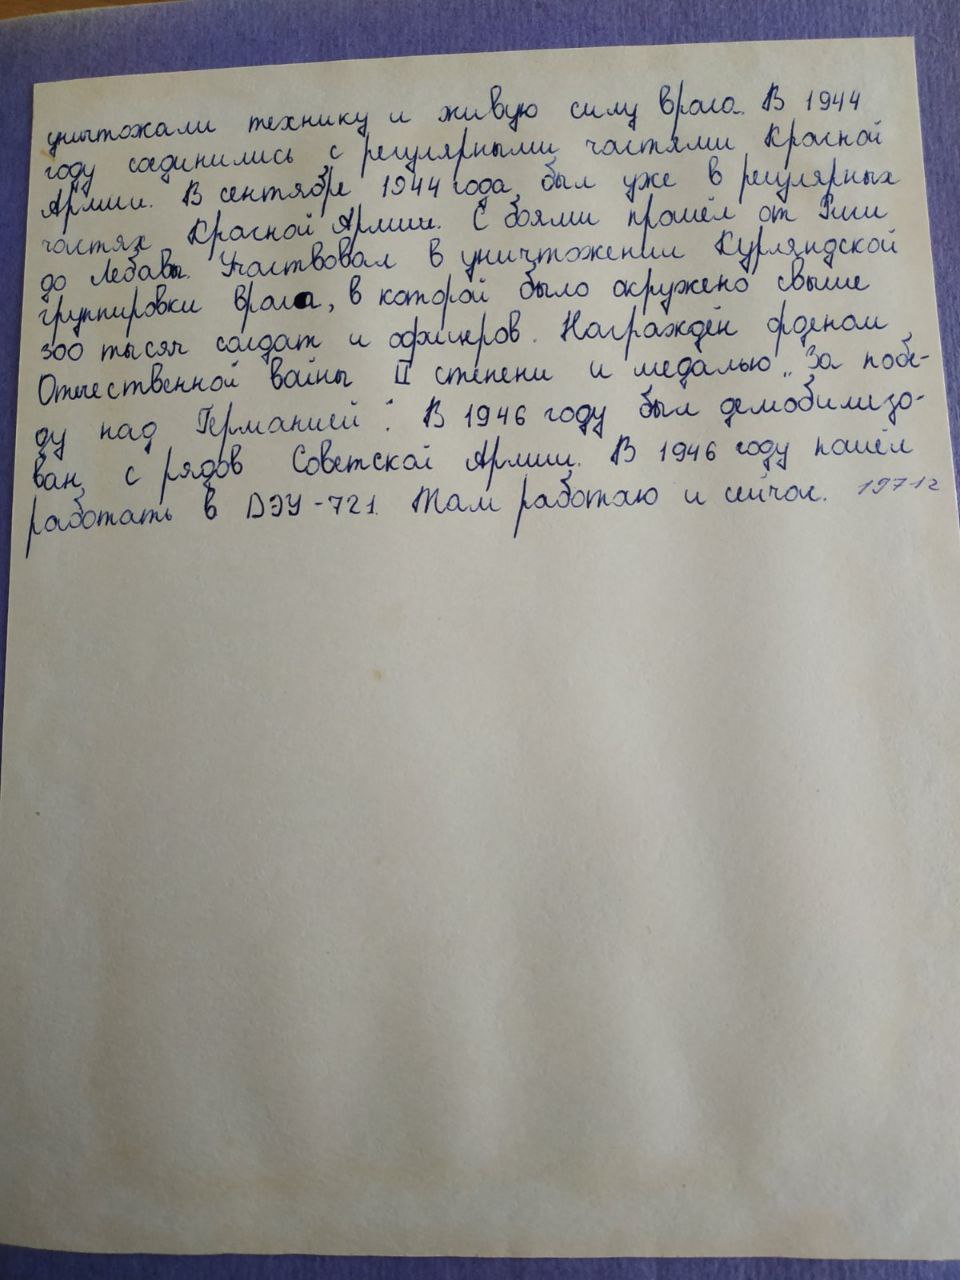 уничтожали технику и живую силу врага. В 1944
году соединились с регулярными частями Красной
Армии. В сентябре 1944 года был уже в регулярных
частях Красной Армии. С боями прошёл от Риги
до Лебавы. Участвовал в уничтожении Курляндской
группировки врага, в которой было окружено свыше
300 тысяч солдат и офицеров. Награждён орденом
Отечественной войны II степени и медалью „За побе-
ду над Германией". В 1946 году был демобилизо-
ван с рядов Советской Армии. В 1946 году пошёл
работать в ДЭУ-721. Там работаю и сейчас. 1971г